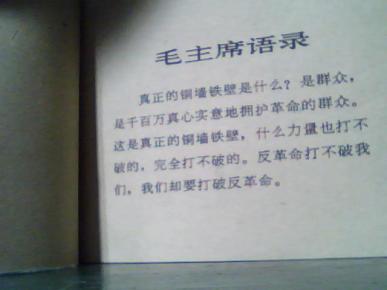 毛主席语录
真正的铜墙铁壁是什么？是群众，
是千百万真心实意地拥护革命的群众。
这是真正的铜墙铁壁，什么力量也打不
破的，完全打不破的。反革命打不破我
们，我们却要打破反革命。